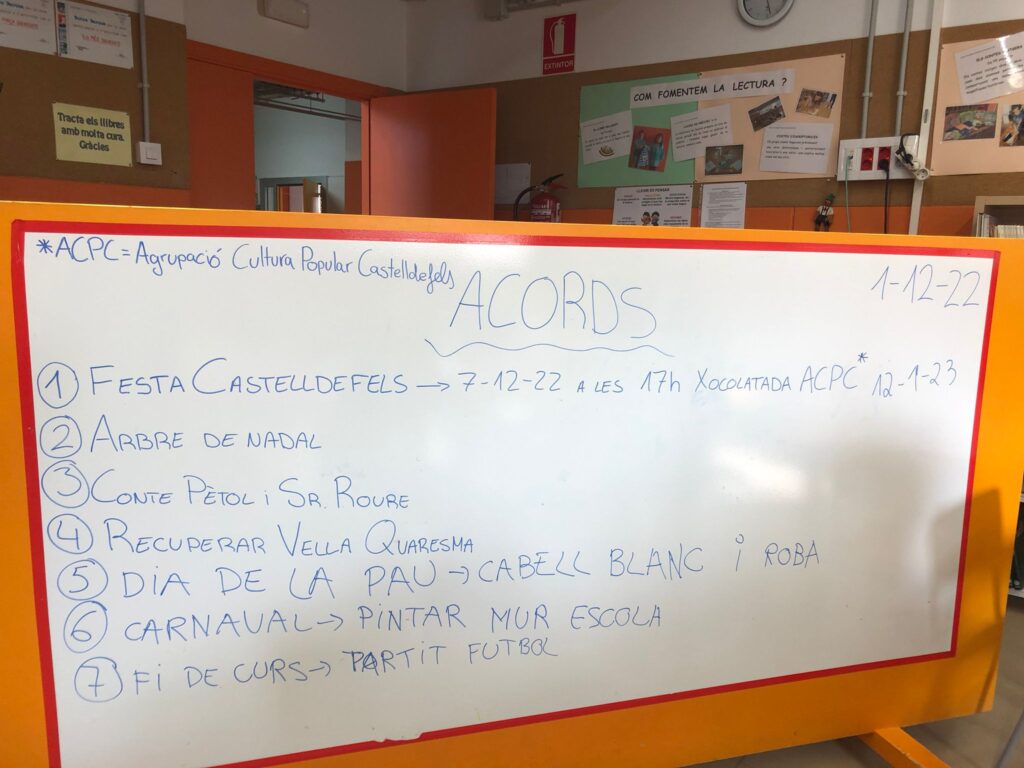 EXTINTOR
COM FOMENTEM LA LECTURA ?
Tracta els llibres
amb molta cura.
Gràcies
*ACPC = Agrupació Cultura Popular Castelldefels
1-12-22
ACORDS
1 FESTA CASTELLDEFELS → 7-12-22 A LES 17h XOCOLATADA ACPC* 12-1-23
2 ARBRE DE NADAL
3 CONTE PÈTOL i SR. ROURE
4 RECUPERAR VELLA QUARESMA
5 DIA DE LA PAU → CABELL BLANC I ROBA
6 CARNAVAL → PINTAR MUR ESCOLA
7 FI DE CURS → PARTIT FUTBOL